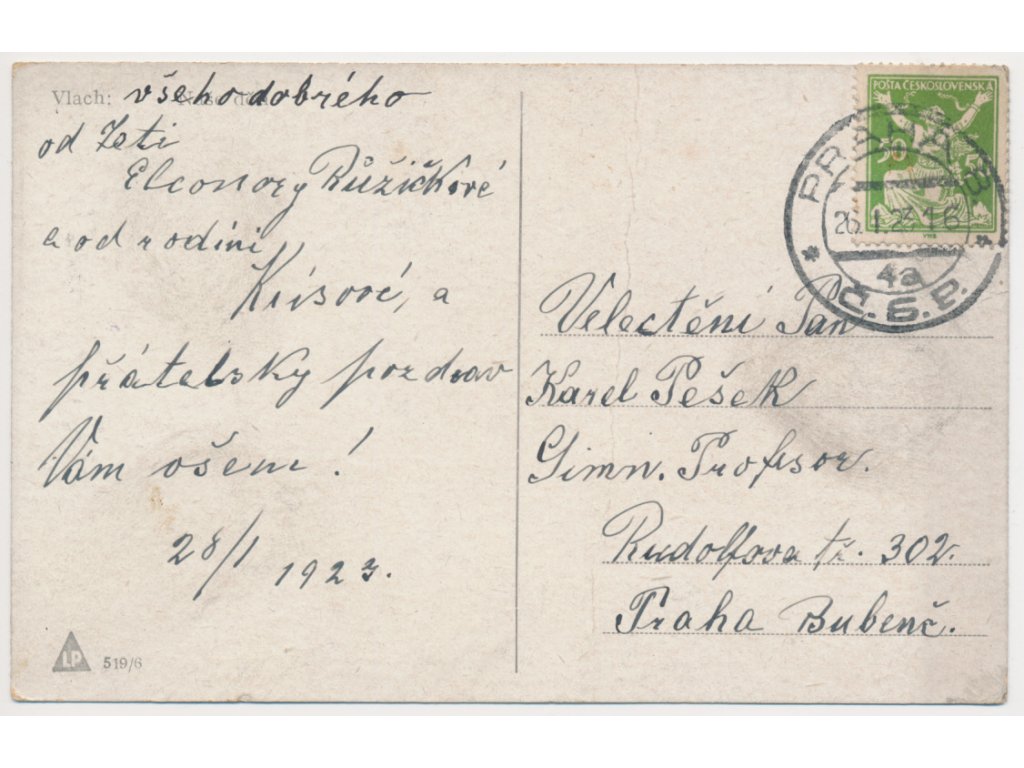 Vlach:
všeho dobrého
od Zeti
Eleonory Růžičkové
a od rodini
Krisové, a
přátelsky pozdrav
Vám ošem!
28/1 1923.
LP 519/6
POŠTA ČESKOSLOVENSKÁ
50 50
PRAHA 8.
26. I. 23 16
4a
Č.S.P.
Velectěni Pan
Karel Pešek
Gimn. Profesor.
Rudolfova tř. 302.
Praha Bubenč.